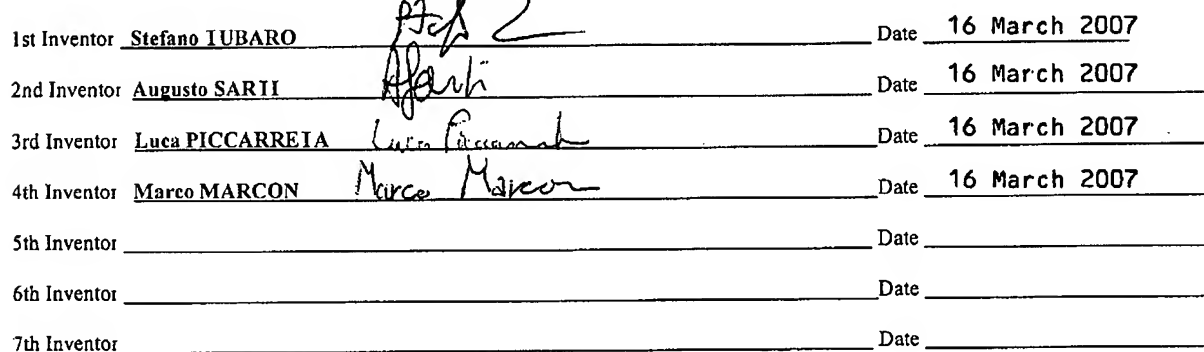 1st Inventor Stefano IUBARO Date 16 March 2007
2nd Inventor Augusto SARII ASarti Date 16 March 2007
3rd Inventor Luca PICCARREIA Luca Date 16 March 2007
4th Inventor Marco MARCON Marco Marcon Date 16 March 2007
5th Inventor Date
6th Inventor Date
7th Inventor Date